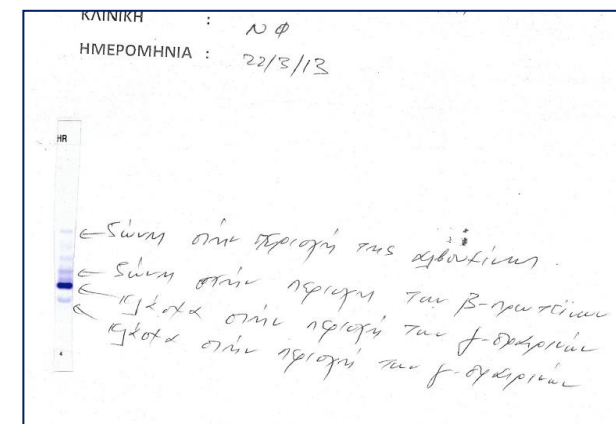 ΚΛΙΝΙΚΗ : ΝΦ
ΗΜΕΡΟΜΗΝΙΑ : 22/3/13
HR
← ζώνη στην περιοχή της αλβουμίνης.
← ζώνη στην περιοχή των β-πρωτεϊνών
← κλάσμα στην περιοχή των γ-σφαιρινών
← κλάσμα στην περιοχή των γ-σφαιρινών